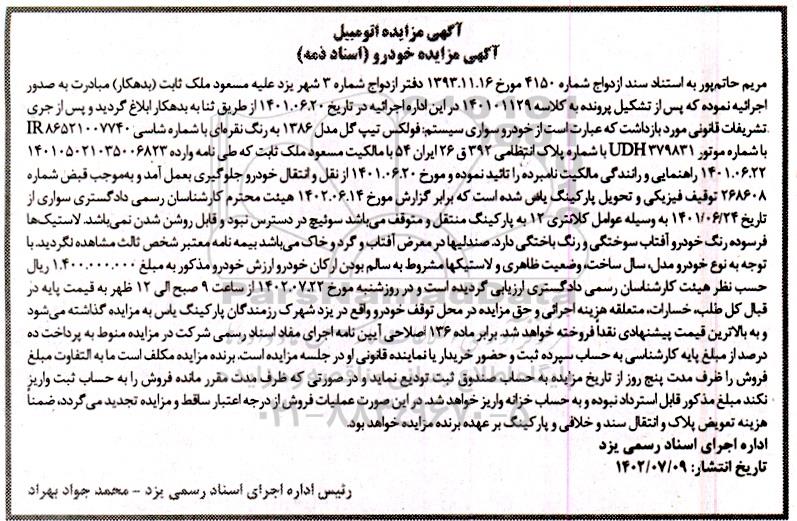 آگهی مزایده اتومبیل
آگهی مزایده خودرو (اسناد ذمه)
مریم حاتم‌پور به استناد سند ازدواج شماره ۴۱۵۰ مورخ ۱۳۹۳.۱۱.۱۶ دفتر ازدواج شماره ۳ شهر یزد علیه مسعود ملک ثابت (بدهکار) مبادرت به صدور
اجرائیه نموده که پس از تشکیل پرونده به کلاسه ۱۴۰۱۰۱۱۲۹ در این اداره اجرائیه در تاریخ ۱۴۰۱.۰۶.۲۰ از طریق ثنا به بدهکار ابلاغ گردید و پس از جری
تشریفات قانونی مورد بازداشت که عبارت است از خودرو سواری سیستم: فولکس تیپ گل مدل ۱۳۸۶ به رنگ نقره‌ای با شماره شاسی IR۸۶۵۲۱۰۰۷۷۴۰
با شماره موتور UDH۳۷۹۸۳۱ با شماره پلاک انتظامی ۳۹۲ ق ۲۶ ایران ۵۴ با مالکیت مسعود ملک ثابت که طی نامه وارده ۱۴۰۱۰۵۰۲۱۰۳۵۰۰۶۸۲۳
۱۴۰۱.۰۶.۲۲ راهنمایی و رانندگی مالکیت نامبرده را تائید نموده و مورخ ۱۴۰۱.۰۶.۲۰ از نقل و انتقال خودرو جلوگیری بعمل آمد و به‌موجب قبض شماره
۲۶۸۶۰۸ توقیف فیزیکی و تحویل پارکینگ یاس شده است که برابر گزارش مورخ ۱۴۰۲.۰۶.۱۴ هیئت محترم کارشناسان رسمی دادگستری سواری از
تاریخ ۱۴۰۱/۰۶/۲۴ به وسیله عوامل کلانتری ۱۲ به پارکینگ منتقل و متوقف می‌باشد سوئیچ در دسترس نبود و قابل روشن شدن نمی‌باشد. لاستیک‌ها
فرسوده رنگ خودرو آفتاب سوختگی و رنگ باختگی دارد. صندلیها در معرض آفتاب و گرد و خاک می‌باشد بیمه نامه معتبر شخص ثالث مشاهده نگردید. با
توجه به نوع خودرو مدل، سال ساخت، وضعیت ظاهری و لاستیکها مشروط به سالم بودن ارکان خودرو ارزش خودرو مذکور به مبلغ ۱.۴۰۰.۰۰۰.۰۰۰ ریال
حسب نظر هیئت کارشناسان رسمی دادگستری ارزیابی گردیده است و در روز شنبه مورخ ۱۴۰۲.۰۷.۲۲ از ساعت ۹ صبح الی ۱۲ ظهر به قیمت پایه در
قبال کل طلب، خسارات، متعلقه هزینه اجرائی و حق مزایده در محل توقف خودرو واقع در یزد شهرک رزمندگان پارکینگ یاس به مزایده گذاشته می‌شود
و به بالاترین قیمت پیشنهادی نقدا فروخته خواهد شد. برابر ماده ۱۳۶ اصلاحی آیین نامه اجرای مفاد اسناد رسمی شرکت در مزایده منوط به پرداخت ده
درصد از مبلغ پایه کارشناسی به حساب سپرده ثبت و حضور خریدار یا نماینده قانونی او در جلسه مزایده است. برنده مزایده مکلف است ما به التفاوت مبلغ
فروش را ظرف مدت پنج روز از تاریخ مزایده به حساب صندوق ثبت تودیع نماید و در صورتی که ظرف مدت مقرر مانده فروش را به حساب ثبت واریز
نکند مبلغ مذکور قابل استرداد نبوده و به حساب خزانه واریز خواهد شد. در این صورت عملیات فروش از درجه اعتبار ساقط و مزایده تجدید می‌گردد، ضمناً
هزینه تعویض پلاک و انتقال سند و خلافی و پارکینگ بر عهده برنده مزایده خواهد بود.
اداره اجرای اسناد رسمی یزد
تاریخ انتشار: ۱۴۰۲/۰۷/۰۹
رئیس اداره اجرای اسناد رسمی یزد - محمد جواد بهراد
ParsNamadData
۰۲۱-۸۸۳۴۹۶۷۰-۸